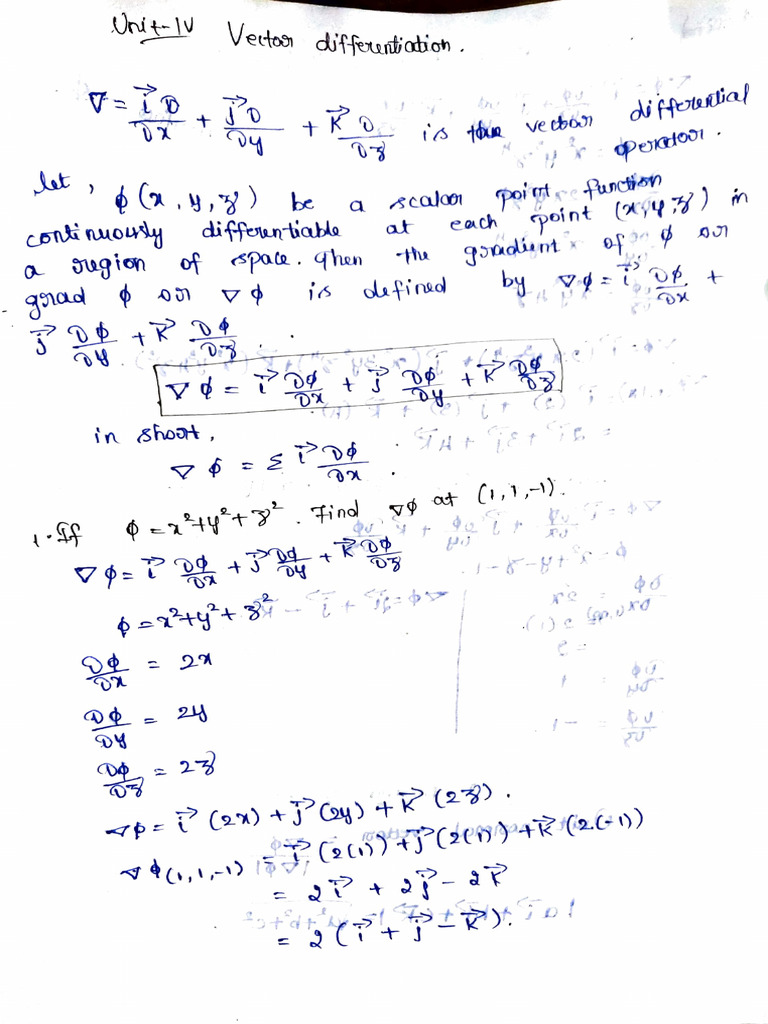 Unit-IV Vector differentiation.
∇ = i⃗ ∂/∂x + j⃗ ∂/∂y + k⃗ ∂/∂z is the vector differential operator.
let, ϕ(x, y, z) be a scalar point function
continuously differentiable at each point (x, y, z) in
a region of space. Then the gradient of ϕ or
grad ϕ or ∇ϕ is defined by ∇ϕ = i⃗ ∂ϕ/∂x +
j⃗ ∂ϕ/∂y + k⃗ ∂ϕ/∂z.
∇ϕ = i⃗ ∂ϕ/∂x + j⃗ ∂ϕ/∂y + k⃗ ∂ϕ/∂z
in short,
∇ϕ = Σ i⃗ ∂ϕ/∂x.
1. If ϕ = x²+y²+z². Find ∇ϕ at (1, 1, -1).
∇ϕ = i⃗ ∂ϕ/∂x + j⃗ ∂ϕ/∂y + k⃗ ∂ϕ/∂z
ϕ = x²+y²+z²
∂ϕ/∂x = 2x
∂ϕ/∂y = 2y
∂ϕ/∂z = 2z
∇ϕ = i⃗ (2x) + j⃗ (2y) + k⃗ (2z).
∇ϕ(1,1,-1) = i⃗ (2(1)) + j⃗ (2(1)) + k⃗ (2(-1))
= 2i⃗ + 2j⃗ - 2k⃗
= 2(i⃗ + j⃗ - k⃗).